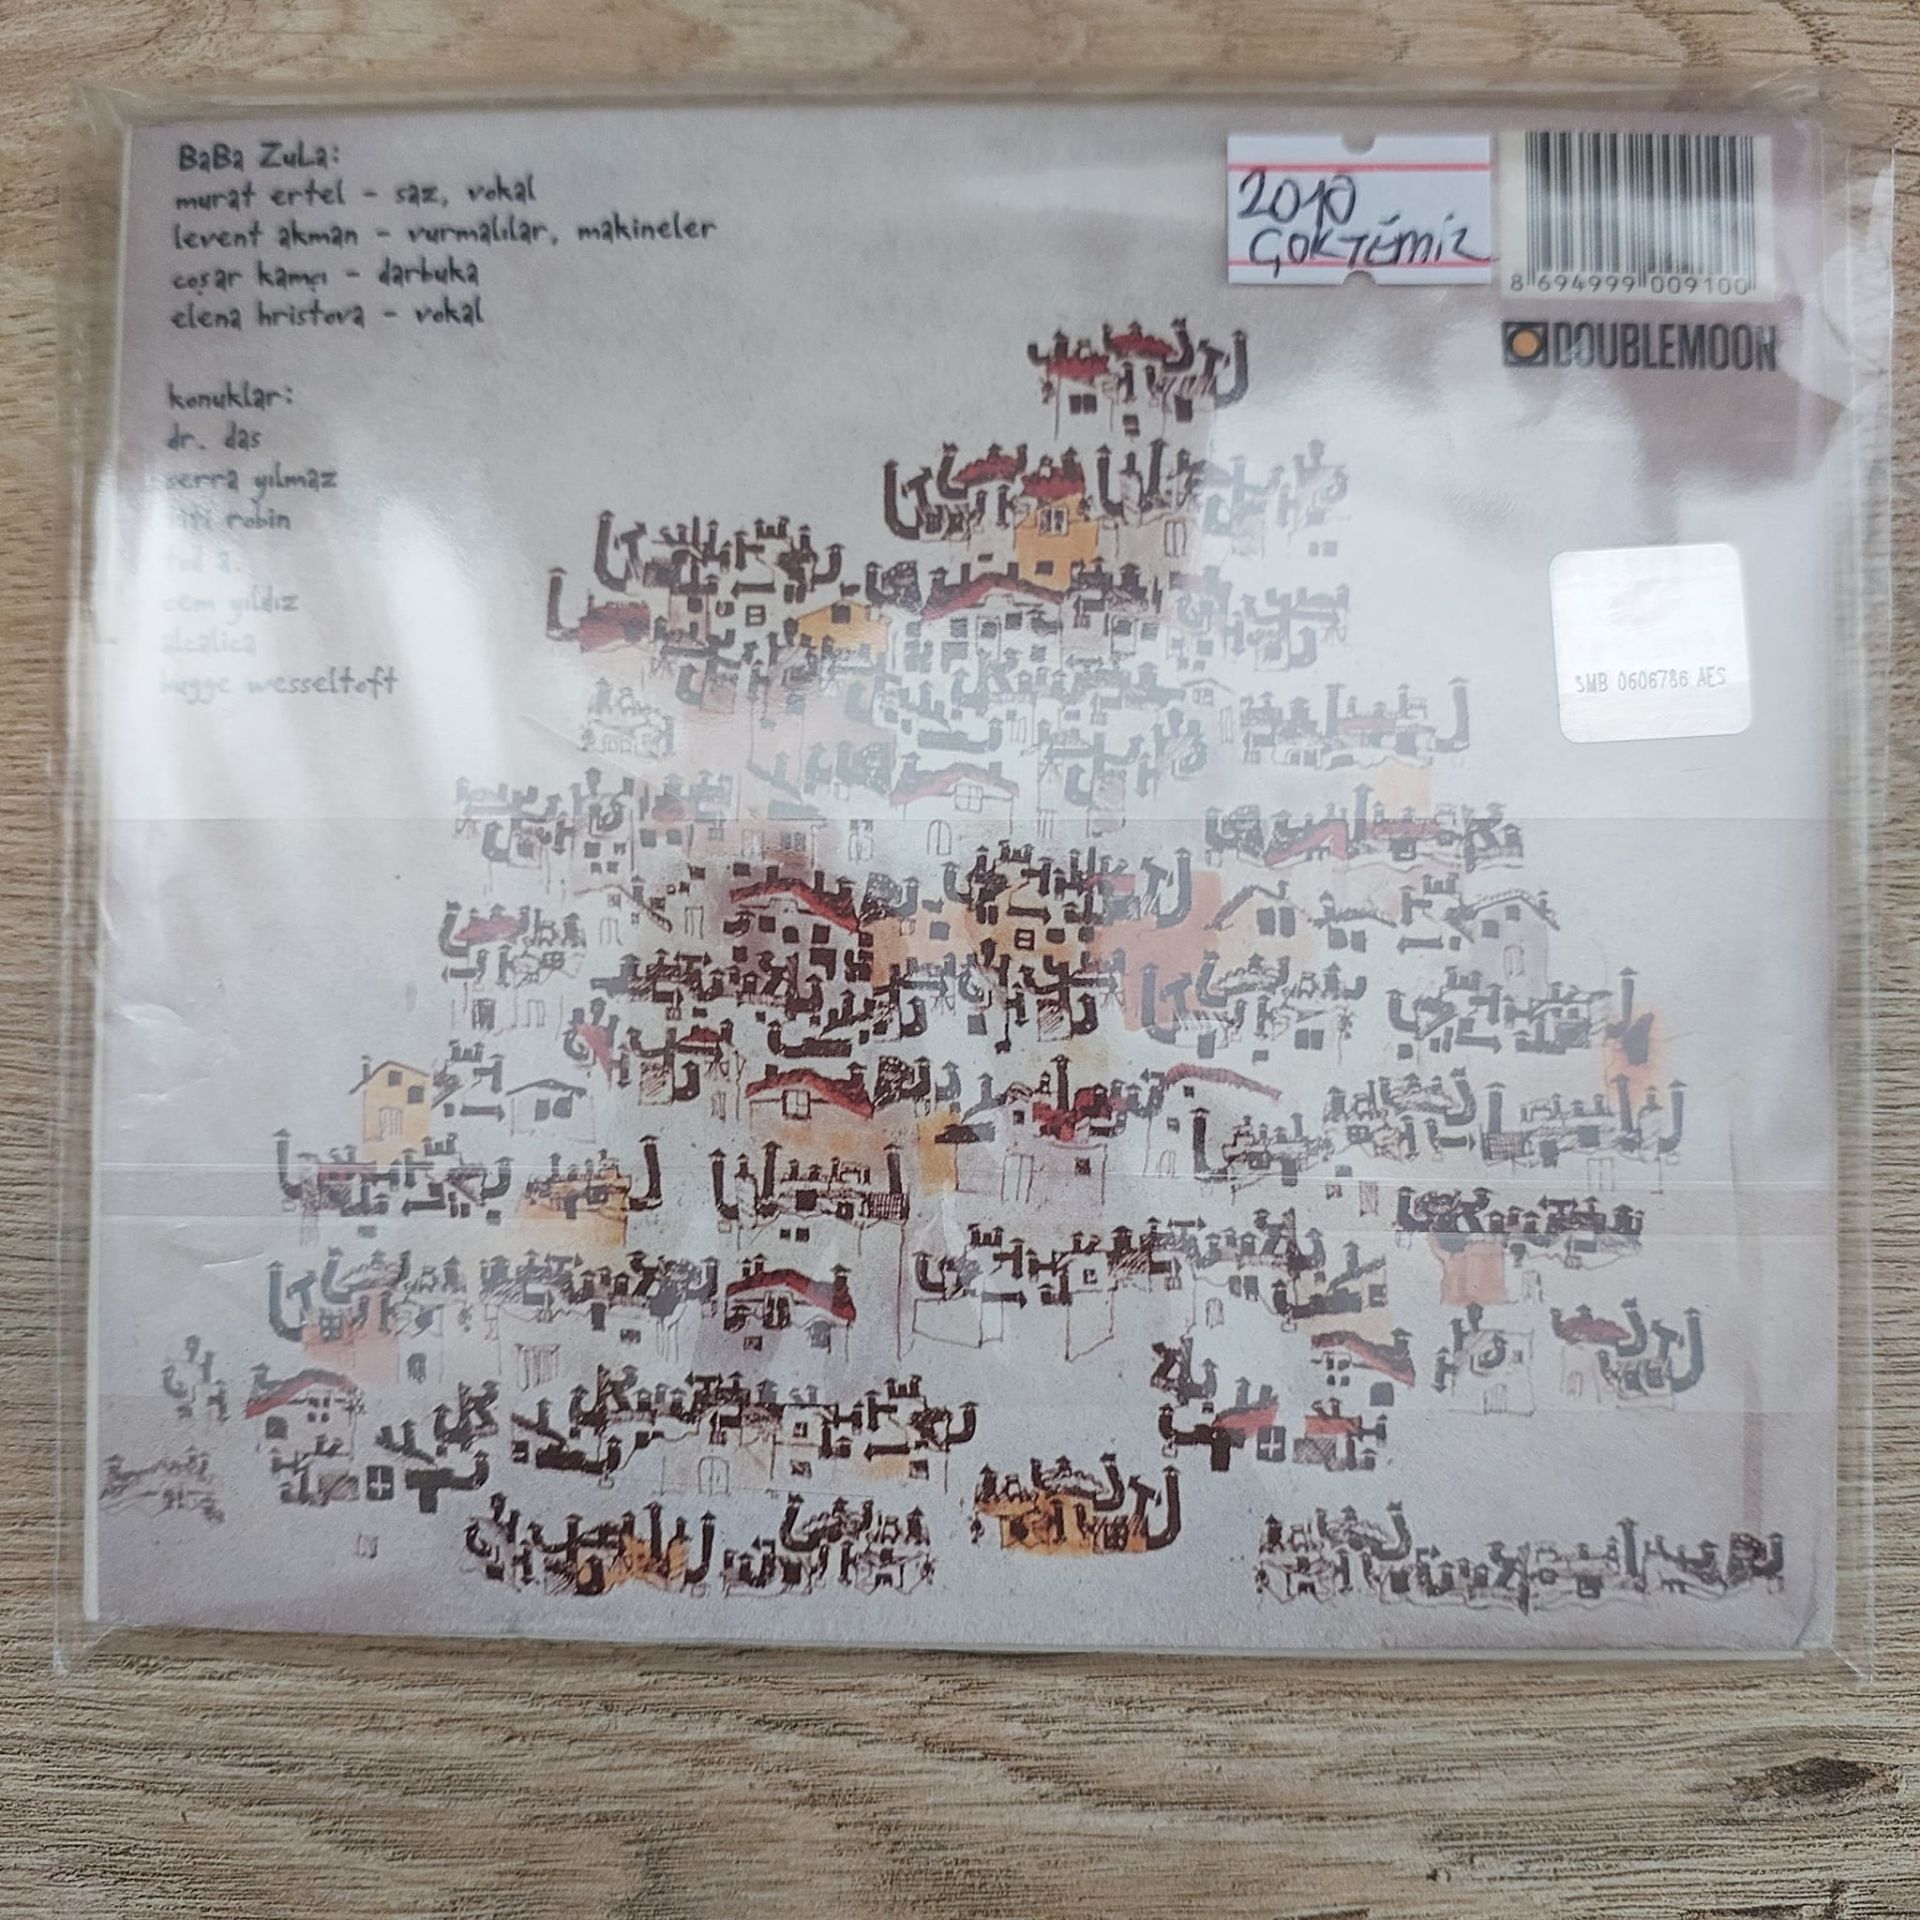 BaBa ZuLa:
murat ertel - saz, vokal
levent akman - vurmalılar, makineler
coşar kamçı - darbuka
elena hristova - vokal
konuklar:
dr. das
serra yılmaz
titi robin
tod a.
cem yıldız
alcalica
bugge wesseltoft
2010
ÇOK TEMİZ
8 694999 009100
DOUBLEMOON
SMB 0606786 AES